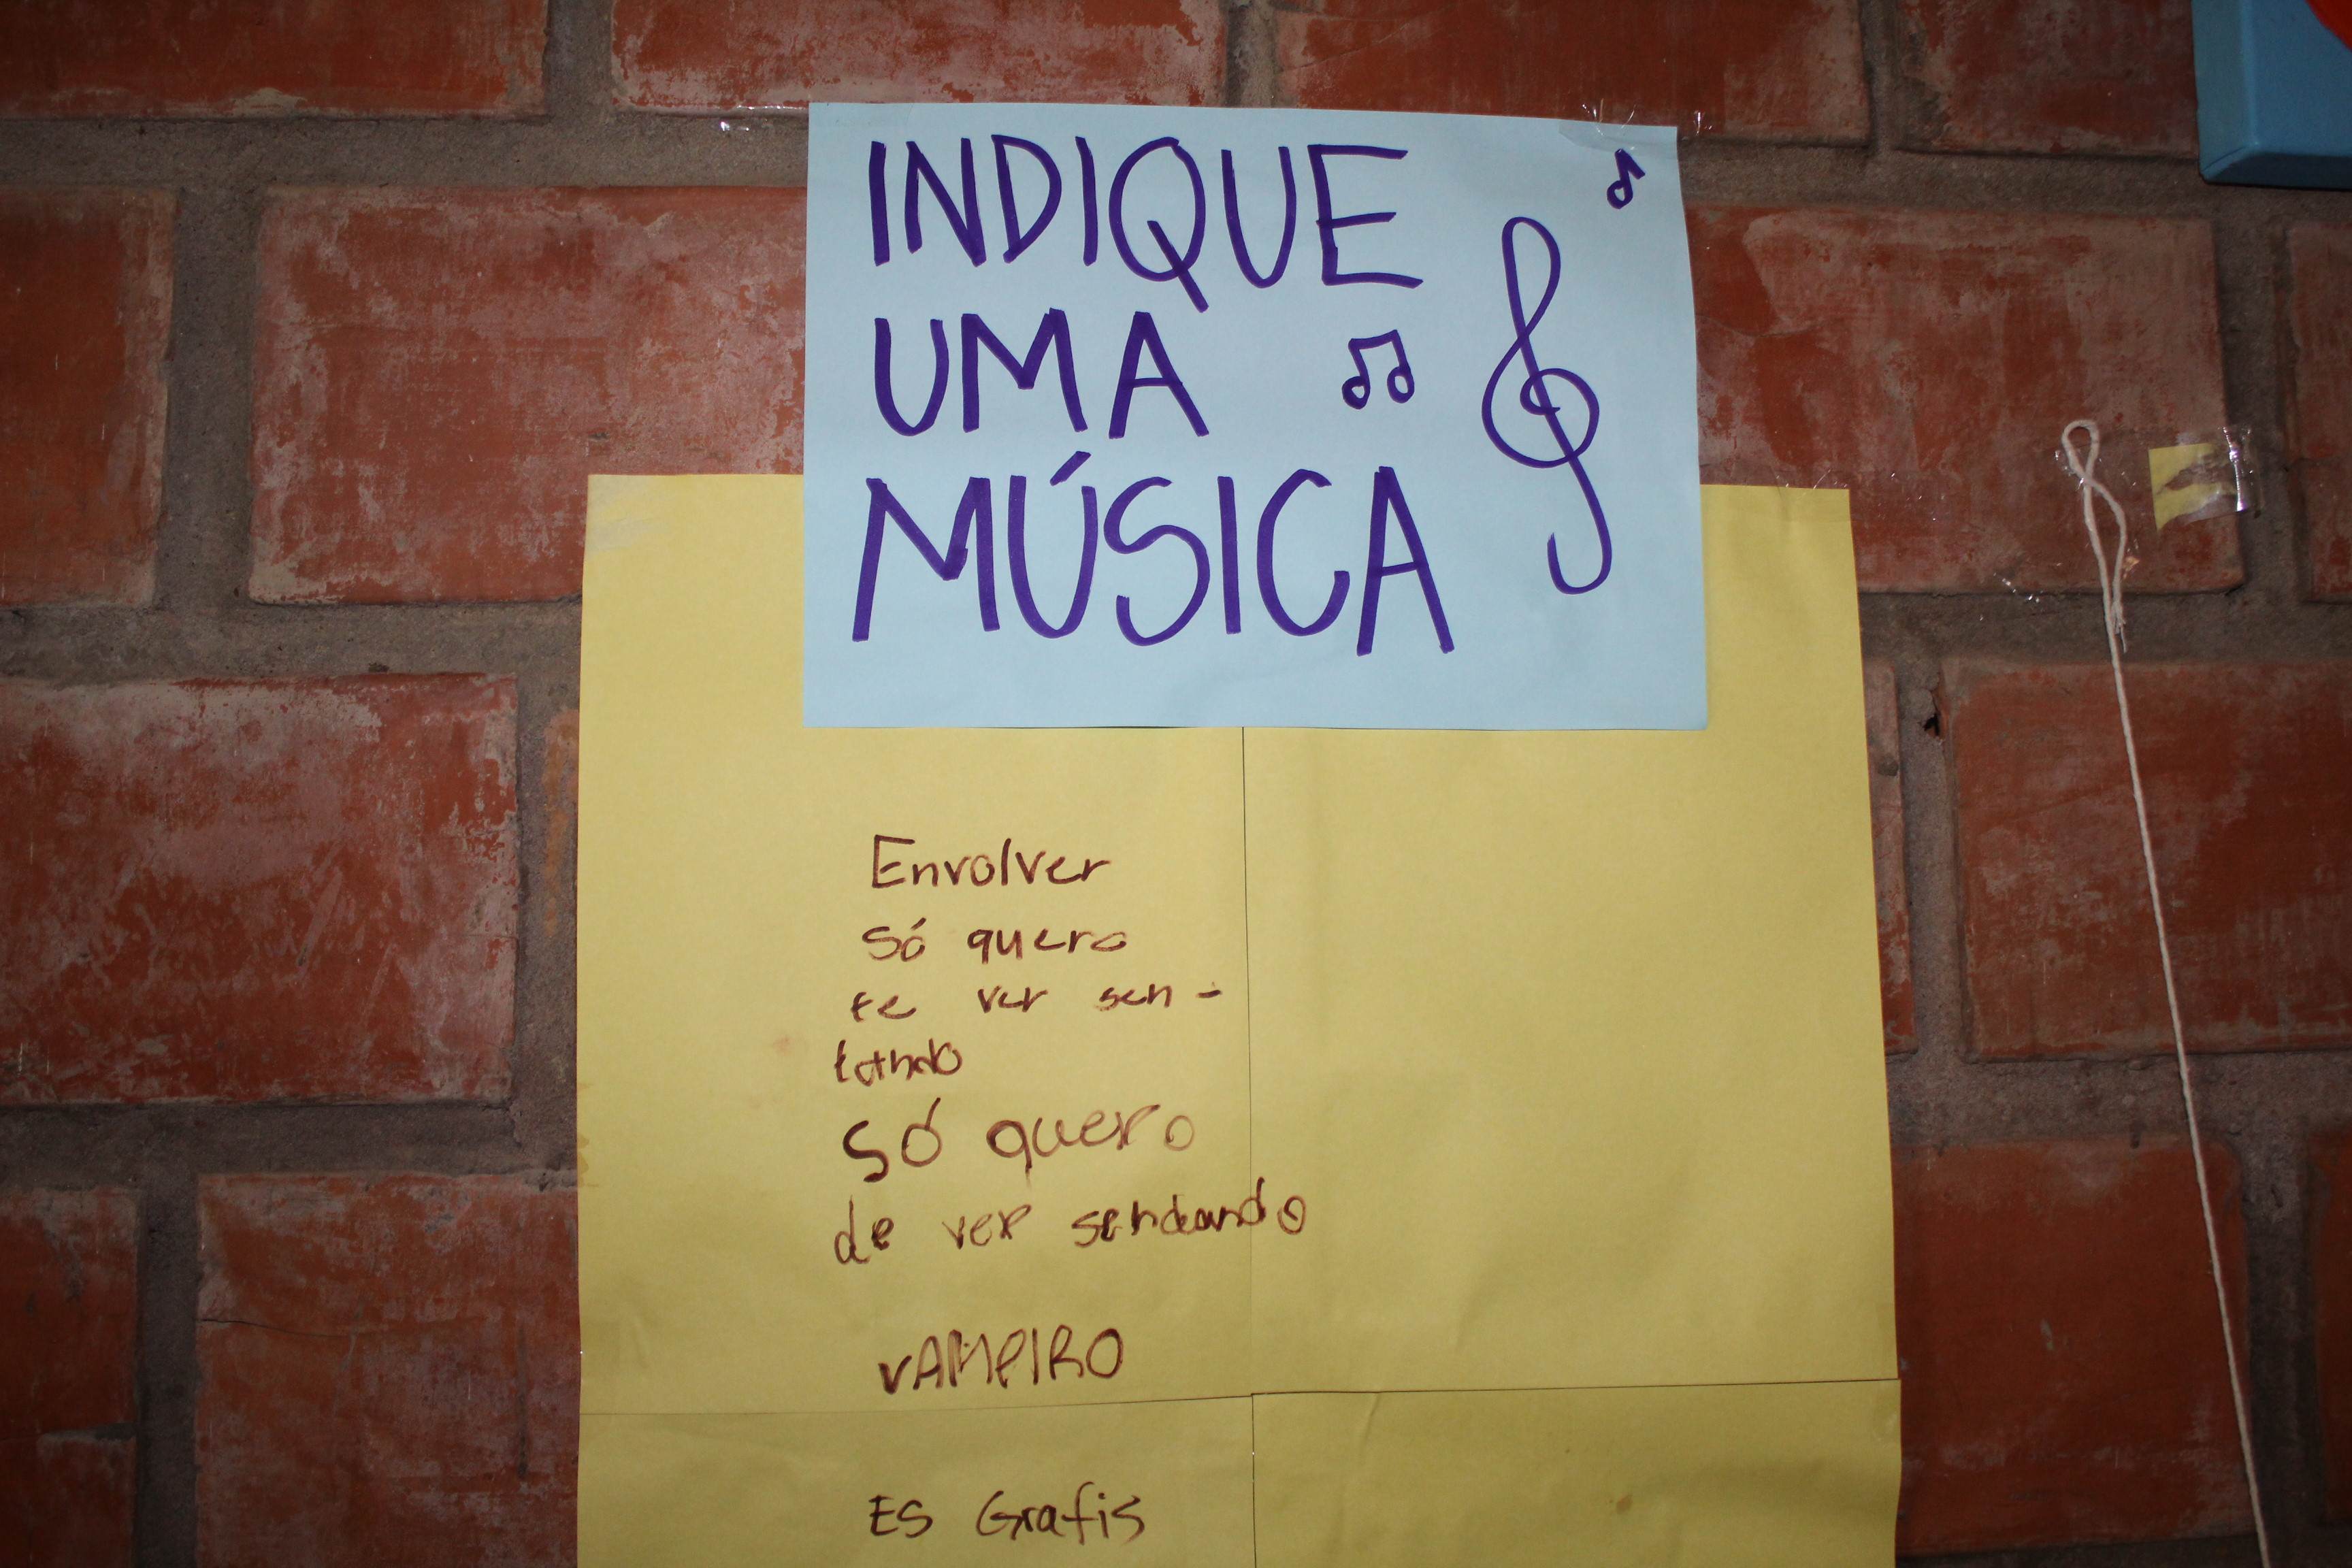 INDIQUE
UMA
MÚSICA
Envolver
Só quero
te ver sen-
tando
Só quero
de ver sendando
VAMPIRO
ES Grafis